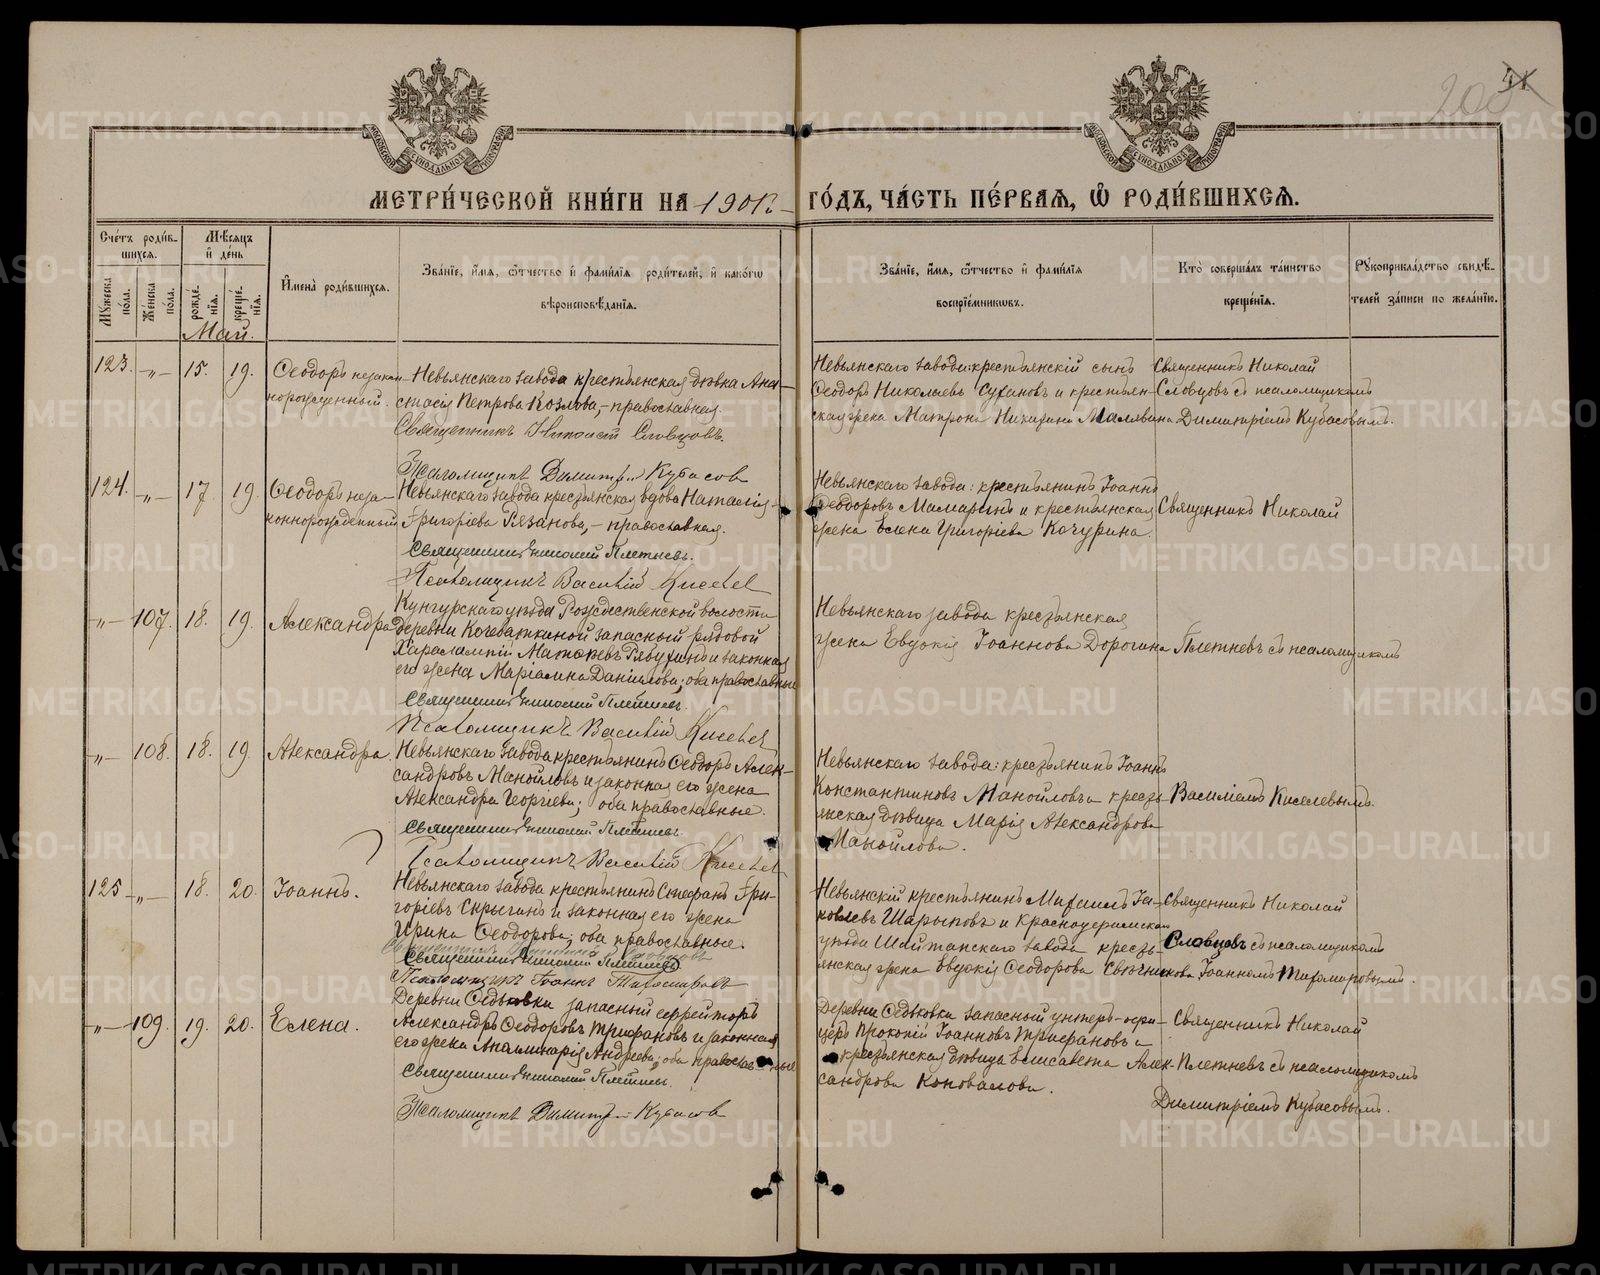 200
МЕТРИ́ЧЕСКОЙ КНИ́ГИ НА 1901й ГО́ДЪ, ЧА́СТЬ ПЕ́РВАЯ, Ѡ РОДИ́ВШИХСЯ.
Сче́тъ роди́вшихся.
Мѣ́сяцъ и҆ де́нь
Мꙋ́жеска по́ла.
Же́нска по́ла.
рожде́нїѧ.
креще́нїѧ.
И҆мена̀ роди́вшихсѧ.
Зва́нїе, и҆́мѧ, ѻ҆́тчество и҆ фами́лїѧ роди́телей, и҆ како́гѡ
вѣроисповѣ́данїѧ.
Зва́нїе, и҆́мѧ, ѻ҆́тчество и҆ фами́лїѧ
воспрїе́мникѡвъ.
Кто̀ соверша́лъ та́инство
креще́нїѧ.
Рꙋкоприкла́дство свидѣ́телей за́писи по жела́нїю.
Май.
123. -„- 15. 19.
Ѳеодоръ незаконнорожденный.
Невьянскаго завода крестьянская дѣвка Ана-
стасія Петрова Козлова,- православная.
Священникъ Николай Словцовъ.
Псаломщикъ Димитрій Кубасовъ
Невьянскаго завода: крестьянскій сынъ
Ѳеодоръ Николаевъ Сухановъ и крестьян-
ская жена Матрона Никитина Малявина
Священникъ Николай
Словцовъ съ псаломщикомъ
Димитріемъ Кубасовымъ.
124. -„- 17. 19.
Ѳеодоръ неза-
коннорожденный
Невьянскаго завода крестьянская вдова Наталія
Григоріева Рязанова,- православная.
Священникъ Николай Плетневъ.
Псаломщикъ Василій Киселев
Невьянскаго завода: крестьянинъ Іоаннъ
Ѳеодоровъ Мамаринъ и крестьянская
жена Елена Григоріева Качурина.
Священникъ Николай
-„- 107. 18. 19.
Александра
Кунгурскаго уѣзда Рождественской волости
деревни Кочеваткиной запасный рядовой
Харалампій Матѳеевъ Рябухинъ и законная
его жена Маріамна Данилова; оба православные
Священникъ Николай Плетневъ.
Псаломщикъ Василій Киселев
Невьянскаго завода крестьянская
жена Евдокія Іоаннова Дорогина
Плетневъ съ псаломщикомъ
-„- 108. 18. 19.
Александра.
Невьянскаго завода крестьянинъ Ѳеодоръ Алек-
сандровъ Манойловъ и законная его жена
Александра Георгіева; оба православные.
Священникъ Николай Плетневъ
Псаломщикъ Василій Киселев
Невьянскаго завода: крестьянинъ Іоаннъ
Константиновъ Манойловъ и кресть-
янская дѣвица Марія Александрова
Манойлова.
Василіемъ Киселевымъ.
125 -„- 18. 20.
Іоаннъ.
Невьянскаго завода крестьянинъ Стефанъ Гри-
горіевъ Скрыгинъ и законная его жена
Ирина Ѳеодорова; оба православные.
Священникъ Николай Плетневъ
Псаломщикъ Іоаннъ Тихомировъ
Невьянскій крестьянинъ Михаилъ Іа-
ковлевъ Шарыповъ и Красноуфимскаго
уѣзда Шайтанскаго завода кресть-
янская жена Евдокія Ѳеодорова Свѣчникова
Священникъ Николай
Словцовъ съ псаломщикомъ
Іоанномъ Тихомировымъ.
-„- 109. 19. 20.
Елена.
Деревни Ѳедьковки запасный ефрейторъ
Александръ Ѳеодоровъ Трифановъ и законная
его жена Аполлинарія Андреева; оба православные
Священникъ Николай Плетневъ.
Псаломщикъ Димитрій Кубасовъ
Деревни Ѳедьковки запасный унтеръ-офи-
церъ Прокопій Іоанновъ Трифановъ и
крестьянская дѣвица Елисавета Алек-
сандрова Коновалова.
Священникъ Николай
Плетневъ съ псаломщикомъ
Димитріемъ Кубасовымъ.